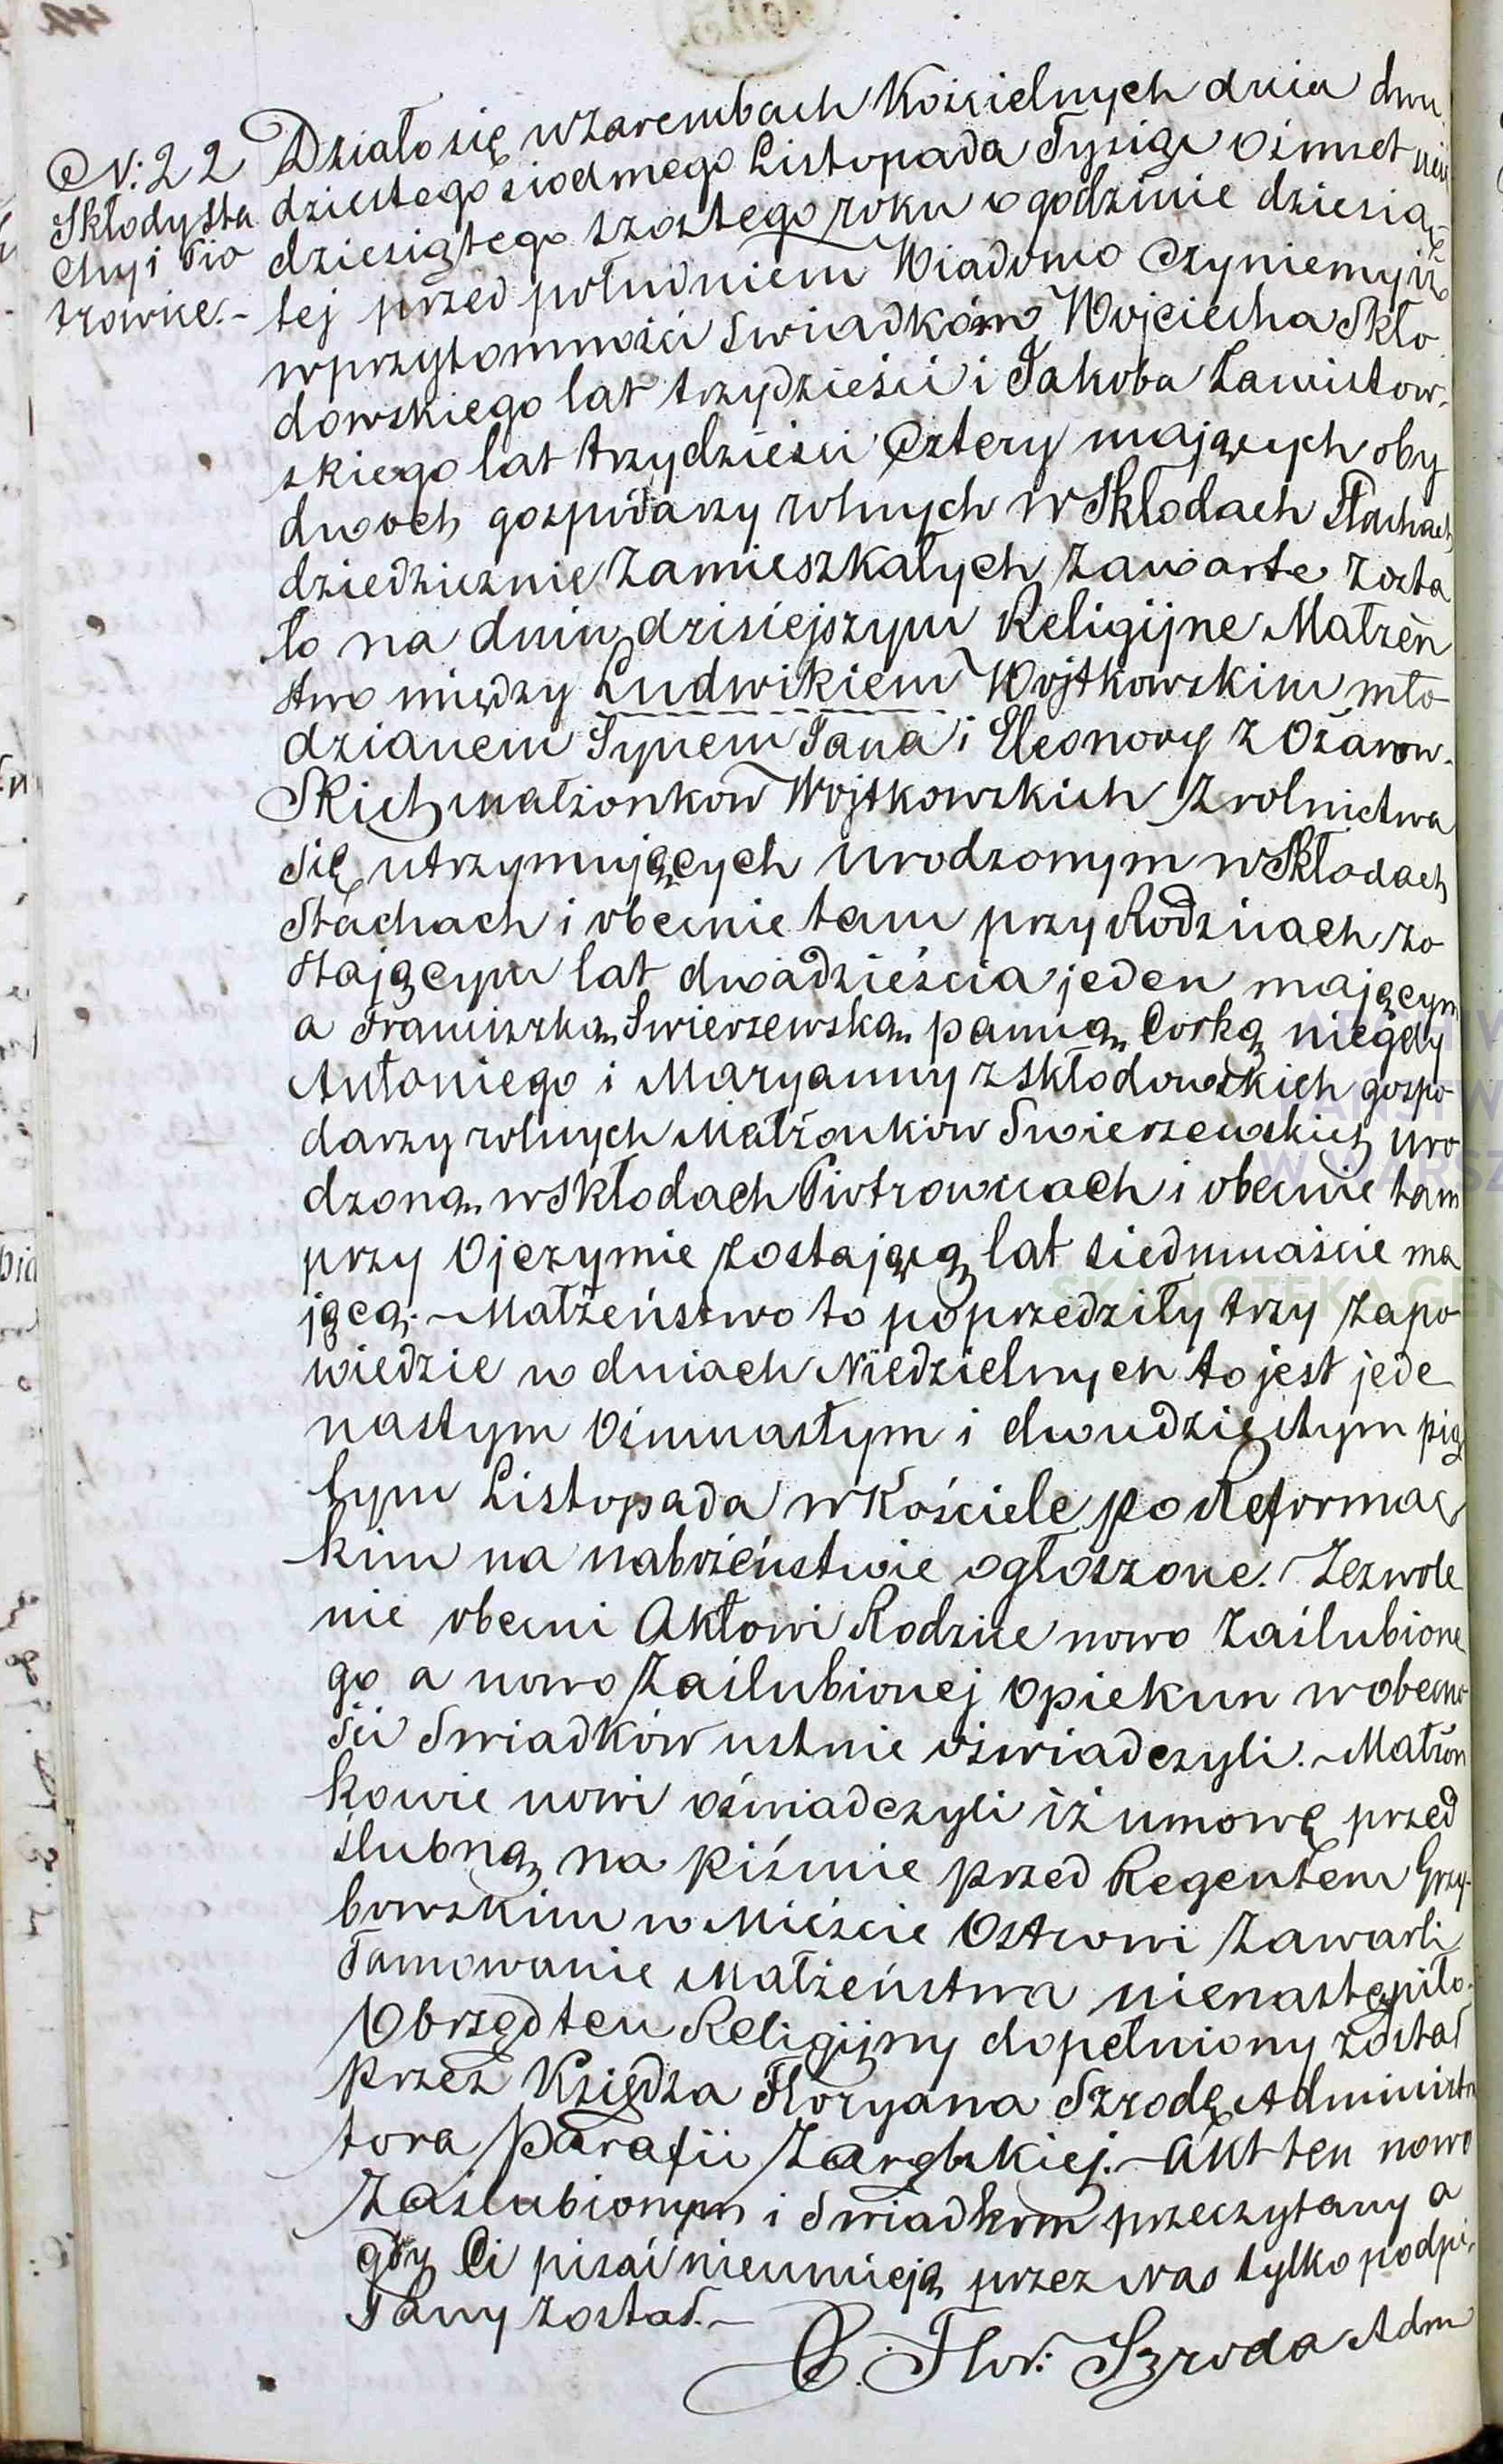 N: 22
Skłody Sta
chy i Pio
trowice.-
Działo się w Zarembach Kościelnych dnia dwu
dziestego siodmego Listopada Tysiąc ośmset
dziesiątego szostego roku o godzinie dziesią
tej przed południem Wiadomo Czyniemy iż
w przytomności Swiadków Wojciecha Skło
dowskiego lat trzydzieści i Jakoba Zawistow-
skiego lat trzydzieści Cztery mających oby
dwoch gospodarzy rolnych w Skłodach Stachach
dziedzicznie zamieszkałych zawarte zosta
ło na dniu dzisiejszym Religijne Małżeń
stwo między Ludwikiem Wojtkowskim mło-
dzianem Synem Jana i Eleonory z Ożarow-
skich małżonków Wojtkowskich z rolnictwa
się utrzymujących urodzonym w Skłodach
Stachach i obecnie tam przy Rodzicach zo
stającym lat dwadzieścia jeden mającym
a Franciszką Swierzewską panną Corką niegdy
Antoniego i Maryanny z Skłodowskich gospo-
darzy rolnych Małżonków Swierzewskich uro
dzoną w Skłodach Piotrowicach i obecnie tam
przy Ojczymie zostającą lat siedmnaście ma
jącą.- Małżeństwo to poprzedziły trzy zapo-
wiedzie w dniach Niedzielnych to jest jede
nastym Ośmnastym i dwudziestym pią
tym Listopada w Kościele po Reformac
kim na nabożeństwie ogłoszone. Zezwole
nie obecni Aktowi Rodzice nowo Zaślubione
go a nowo Zaślubionej opiekun w obecno-
ści Swiadków ustnie oświadczyli.- Małżon
kowie nowi oświadczyli iż umowę przed
ślubną na piśmie przed Regentem Grzy-
bowskim w Mieście Ostrowi Zawarli
Tamowanie Małżeństwa nienastąpiło.
Obrzęd ten Religijny dopełniony został
przez Księdza Floryana Szrodę Administra
tora Parafii Zarębskiej.- Akt ten nowo
Zaślubionym i Swiadkom przeczytany a
gdy Ci pisać nieumieją przez nas tylko podpi-
sany został.-
X. Flor: Szroda Adm